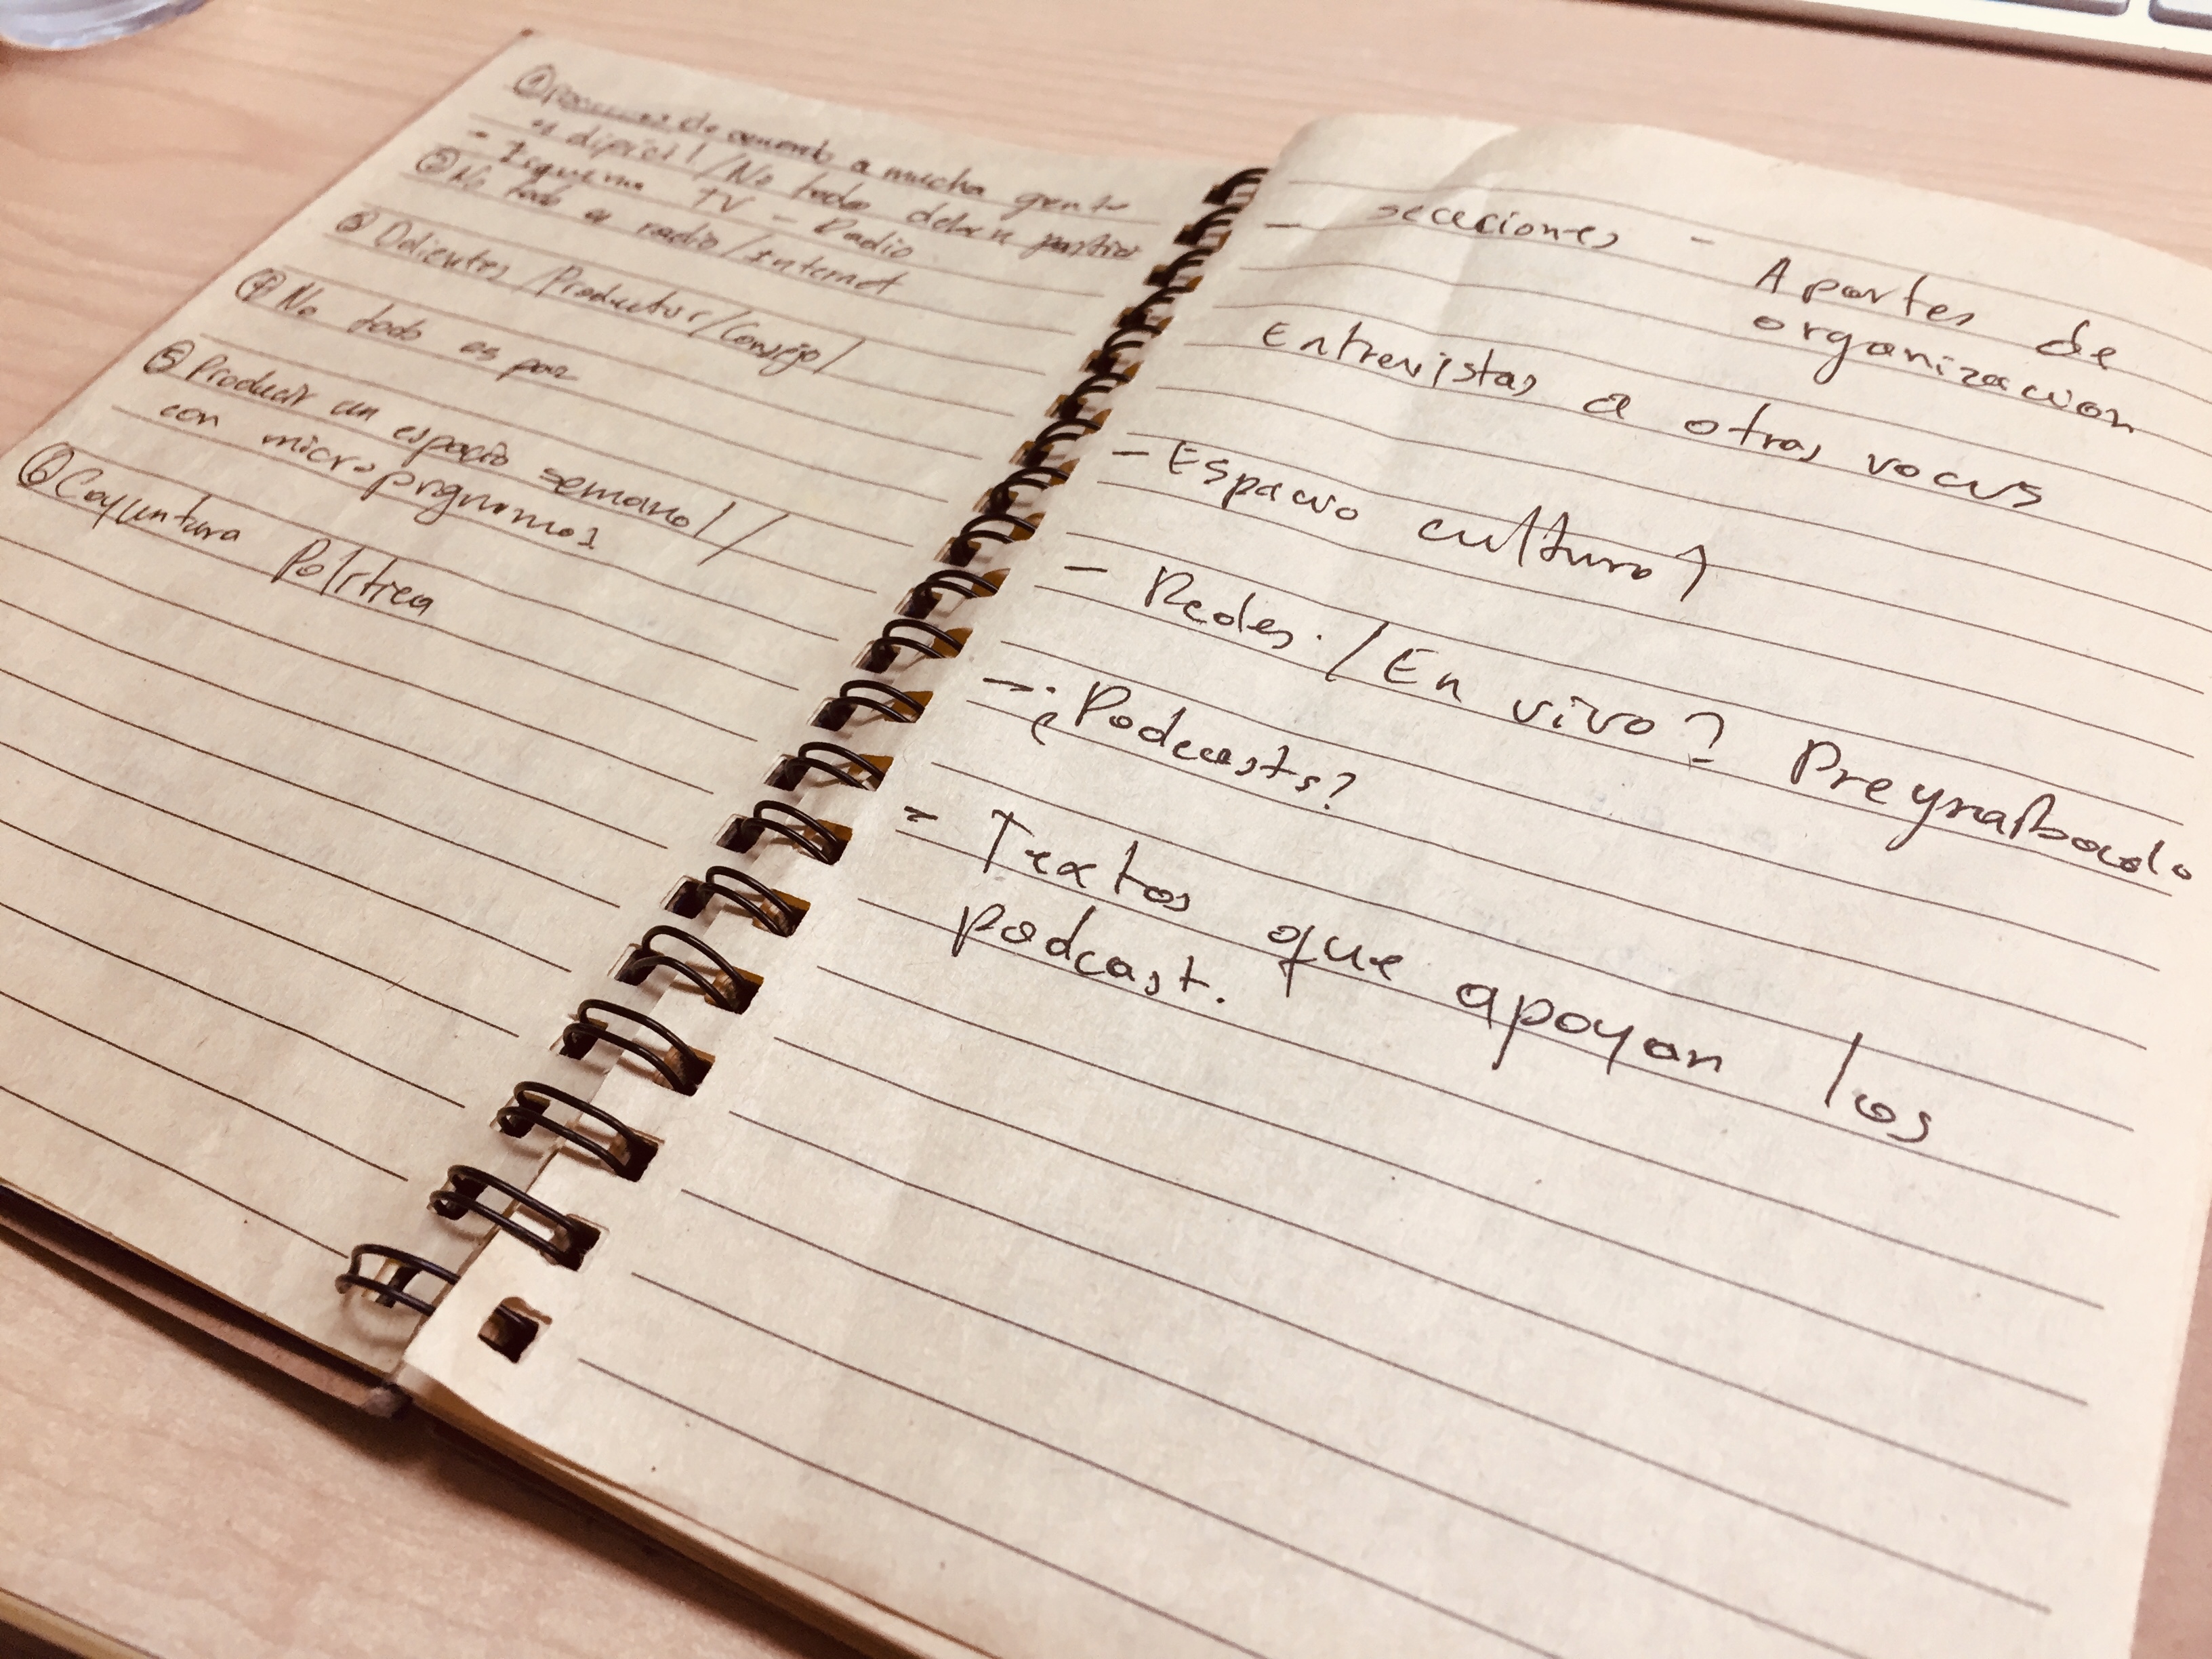 ① de acuerdo a mucha gente
es dificil / No todo deben partir
- Esquema TV - Radio
② No todo es radio / internet
③ Dolientes / Productor / Consejo /
④ No todo es paz
⑤ Producir un espacio semanal /
con micro prgramas
⑥ Coyuntura Politica
- secciones - Apartes de
organizacion
Entrevistas a otras voces
- Espacio cultural
- Redes. / En vivo? Pregrabado
- ¿Podcasts?
- Textos que apoyan los
podcast.